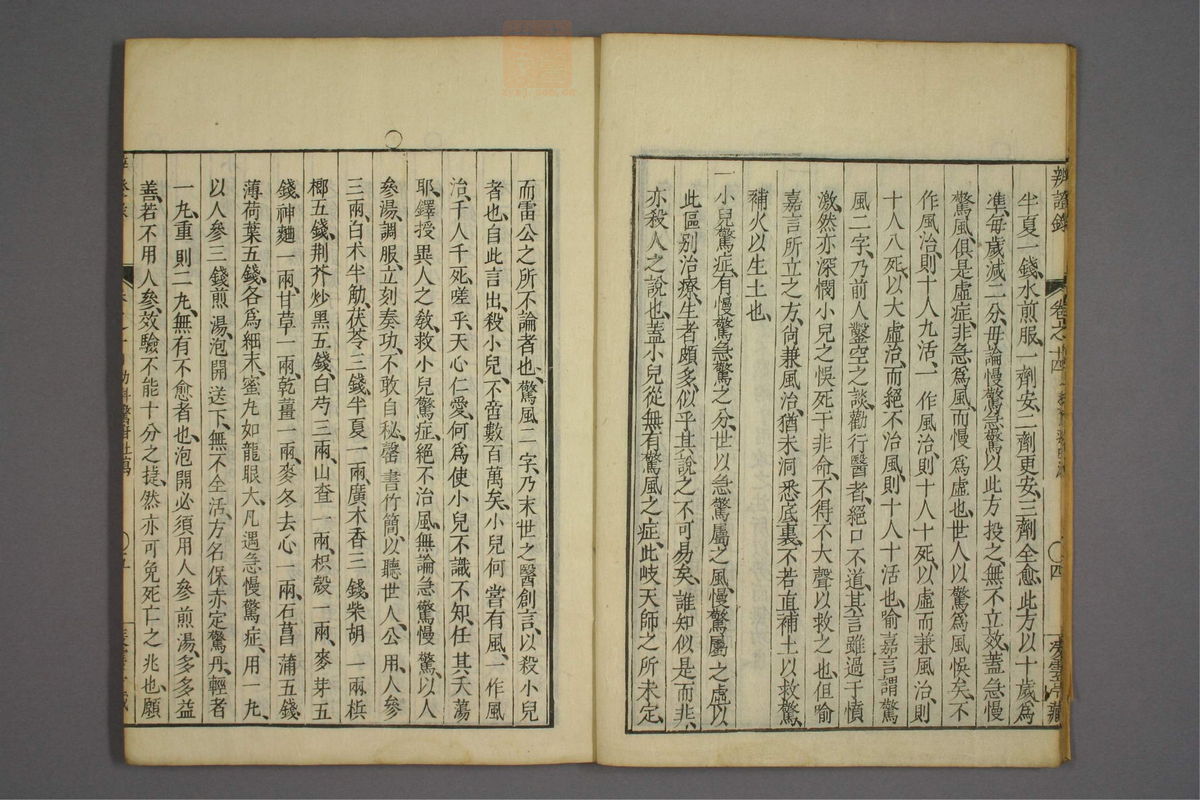 辨證錄
卷之十四
四
半夏一錢水煎服一劑安二劑更安三劑全愈此方以十歲為
準每歲減二分毋論慢驚急驚以此方投之無不立效蓋急慢
驚風俱是虛症非急為風而慢為虛也世人以驚為風悞矣不
作風治則十人九活一作風治則十人十死以虛而兼風治則
十人八死以大虛治而絕不治風則十人十活也喻嘉言謂驚
風二字乃前人鑿空之談勸行醫者絕口不道其言雖過于憤
激然亦深憫小兒之悞死于非命不得不大聲以救之也但喻
嘉言所立之方尚兼風治猶未洞悉底裏不若直補土以救驚
補火以生土也
一小兒驚症有慢驚急驚之分世以急驚屬之風慢驚屬之虛以
此區別治療生者頗多似乎其說之不可易矣誰知似是而非
亦殺人之說也蓋小兒從無有驚風之症此岐天師之所未定
而雷公之所不論者也驚風二字乃末世之醫創言以殺小兒
者也自此言出殺小兒不啻數百萬矣小兒何嘗有風一作風
治千人千死嗟乎天心仁愛何為使小兒不識不知任其夭蕩
耶鐸授異人之敎救小兒驚症絕不治風無論急驚慢驚以人
參湯調服立刻奏功不敢自秘罄書竹簡以聽世人公用人參
三兩白朮半觔茯苓三錢半夏一兩廣木香三錢柴胡一兩梹
榔五錢荆芥炒黑五錢白芍三兩山查一兩枳殼一兩麥芽五
錢神麯一兩甘草一兩乾薑一兩麥冬去心一兩石菖蒲五錢
薄荷葉五錢各為細末蜜丸如龍眼大凡遇急慢驚症用一丸
以人參三錢煎湯泡開送下無不全活方名保赤定驚丹輕者
一丸重則二丸無有不愈者也泡開必須用人參煎湯多多益
善若不用人參效驗不能十分之捷然亦可免死亡之兆也願